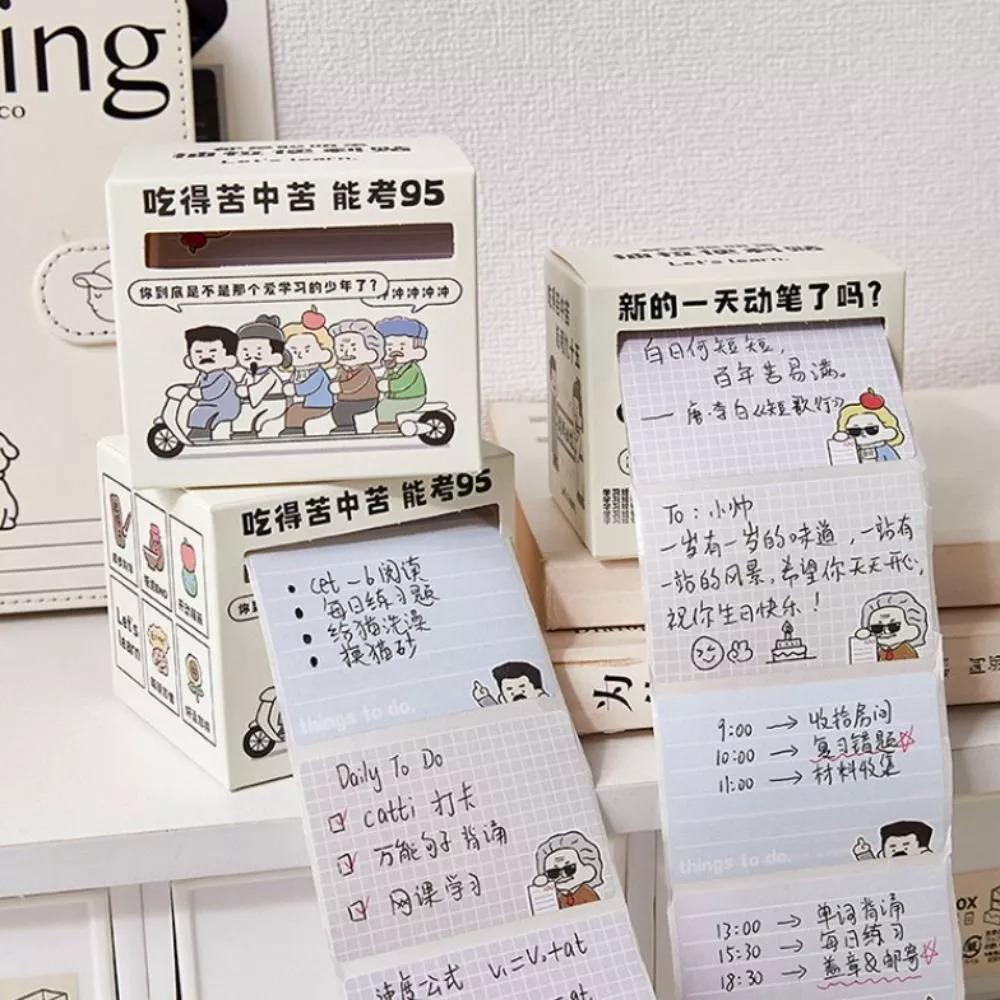 ing
co
Let's learn.
吃得苦中苦 能考95
你到底是不是那个爱学习的少年了?
冲冲冲冲
吃得苦中苦 能考95
Let's
learn
cet-6阅读
每日练习题
给猫洗澡
换猫砂
things to do.
Daily To Do
catti 打卡
万能句子背诵
网课学习
速度公式 V₁=V₀+at
Let's learn.
新的一天动笔了吗?
白日何短短,
百年苦易满。
—唐·李白《短歌行》
To:小帅
一岁有一岁的味道,一站有
一站的风景,希望你天天开心,
祝你生日快乐!
9:00 → 收拾房间
10:00 → 复习错题
11:00 → 材料收集
things to do.
13:00 → 单词背诵
15:30 → 每日练习
18:30 → 盖章&邮寄
为